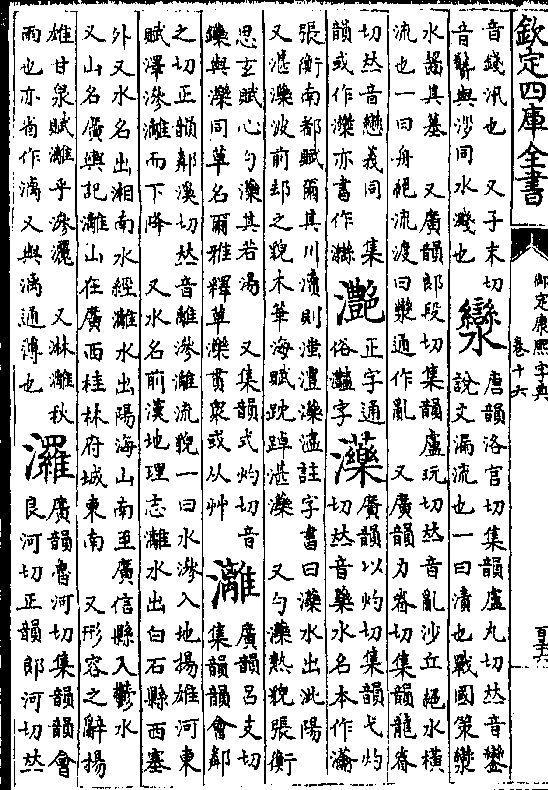 欽定四庫全書
御定康熙字典
卷十六
音錢汛也　又子末切
音鬢與沙同水濺也
灓
唐韻洛官切集韻盧丸切𠀤音鑾
說文漏流也一曰漬也戰國策灓
水齧其墓　又廣韻郎段切集韻盧玩切𠀤音亂沙丘絕水橫
流也一曰舟絕流渡曰灓通作亂　又廣韻力卷切集韻龍眷
切𠀤音戀義同　集
韻或作灓亦書作㶌
灔
正字通
俗灩字
灤
廣韻以灼切集韻弋灼
切𠀤音藥水名本作瀹
張衡南都賦爾其川瀆則滍澧灤濜註字書曰灤水出沘陽
又湛灤波前却之貌木華海賦䟢踔湛灤　又勺灤熱貌張衡
思玄賦心勺灤其若湯　又集韻式灼切音
鑠與灤同草名爾雅釋草灤貫衆或从艸
灕
廣韻呂支切
集韻韻會鄰
之切正韻鄰溪切𠀤音離滲灕流貌一曰水滲入地揚雄河東
賦澤滲灕而下降　又水名前漢地理志灕水出白石縣西塞
外又水名出湘南水經灕水出陽海山南至廣信縣入鬱水
又山名廣輿記灕山在廣西桂林府城東南　又形容之辭揚
雄甘泉賦灕乎滲灑　又淋灕秋
雨也亦省作漓又與漓通薄也
㶒
廣韻魯河切集韻韻會
良河切正韻郎河切𠀤